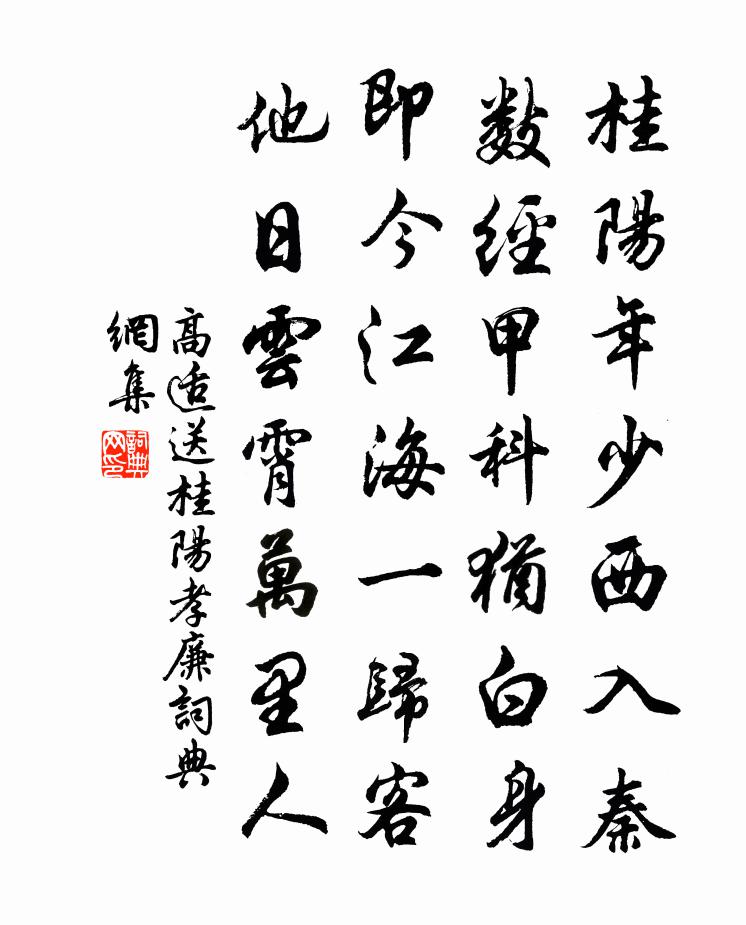 桂陽年少西入秦
數經甲科猶白身
即今江海一歸客
他日雲霄萬里人
高適送桂陽孝廉詞典
網集
詞典
网印